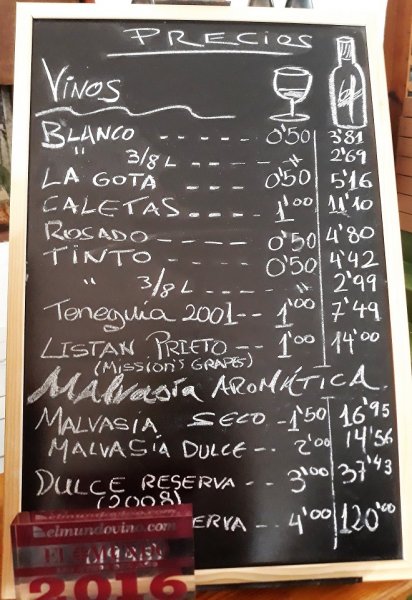 PRECIOS
VINOS
BLANCO ----- 0'50 3'81
" 3/8 L --- " 2'69
LA GOTA --- 0'50 5'16
CALETAS --- 1'00 11'10
ROSADO ----- 0'50 4'80
TINTO ----- 0'50 4'42
" 3/8 L --- " 2'99
Teneguia 2001-- 1'00 7'49
LISTAN PRIETO -- 1'00 14'00
(MISSION'S GRAPES)
MALVASÍA AROMÁTICA.
MALVASIA SECO -1'50 16'95
MALVASÍA DULCE -- 2'00 14'56
DULCE RESERVA -- 3'00 37'43
(2008)
ERVA -- 4'00 120'00
elmundovino.com
2016